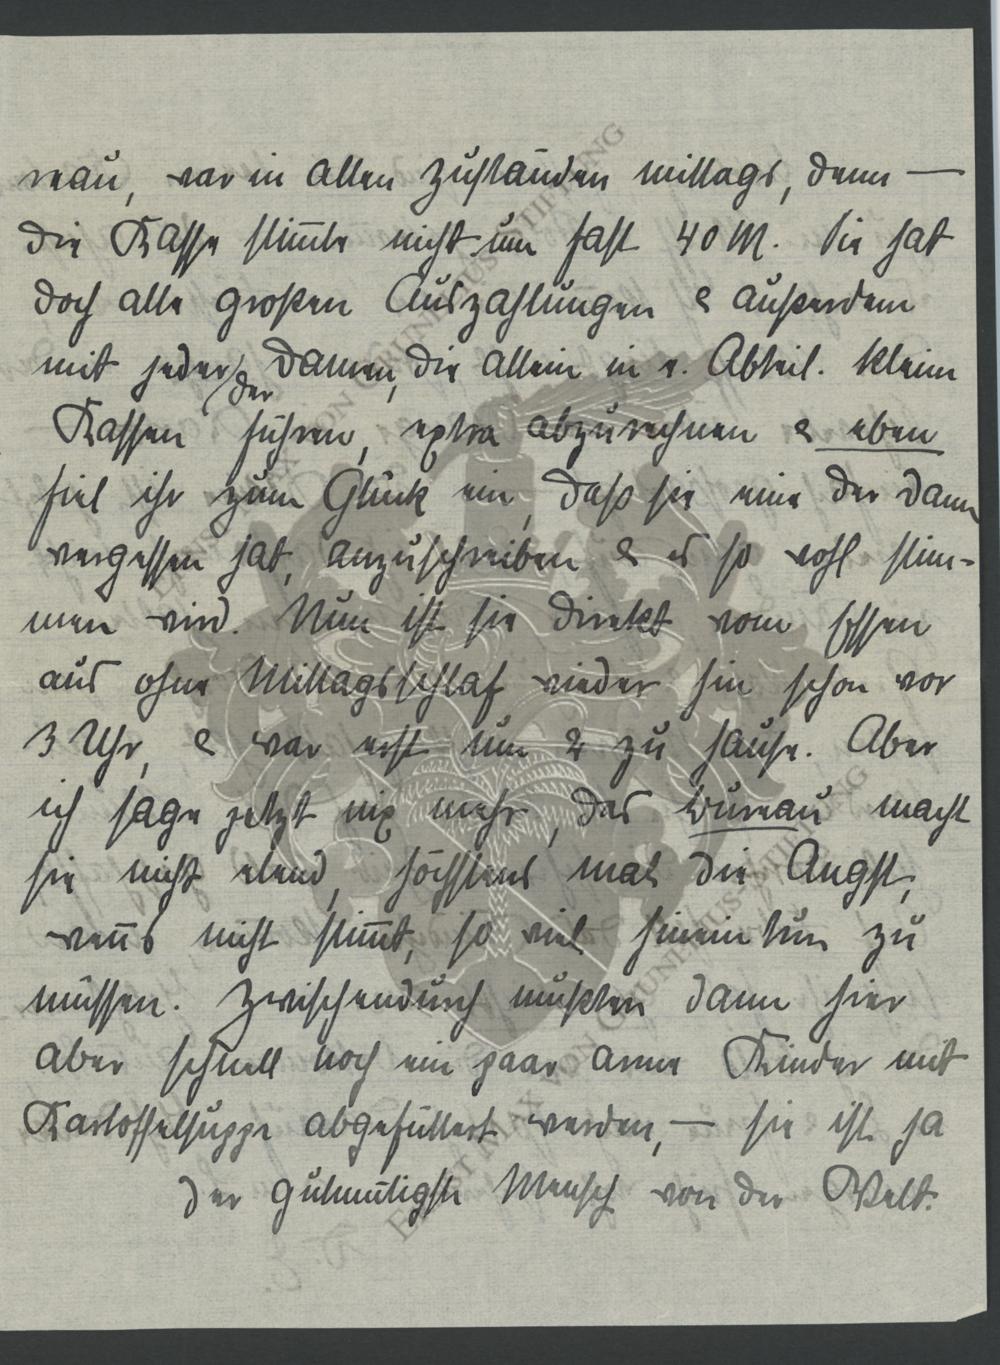 reau, war in allen Zuständen mittags, denn —
die Kasse stimmte nicht um fast 40 M. Sie hat
doch alle großen Auszahlungen & außerdem
mit jeder der Damen, die allein in e. Abteil. kleine
Kassen führen, extra abzurechnen & eben
fiel ihr zum Glück ein, daß sie eine der Damen
vergessen hat, anzuschreiben & es so wohl stim-
men wird. Nun ist sie direkt vom Essen
aus ohne Mittagsschlaf wieder hin schon vor
3 Uhr, & war erst um 2 zu Hause. Aber
ich sage jetzt nix mehr, das Bureau macht
sie nicht elend, höchstens mal die Angst,
wenns nicht stimmt, so viel hineintun zu
müssen. Zwischendurch mußten dann hier
aber schnell noch ein paar arme Kinder mit
Kartoffelsuppe abgefüttert werden, — sie ist ja
der gutmütigste Mensch von der Welt.
ERNST MAX VON GRUNELIUS-STIFTUNG